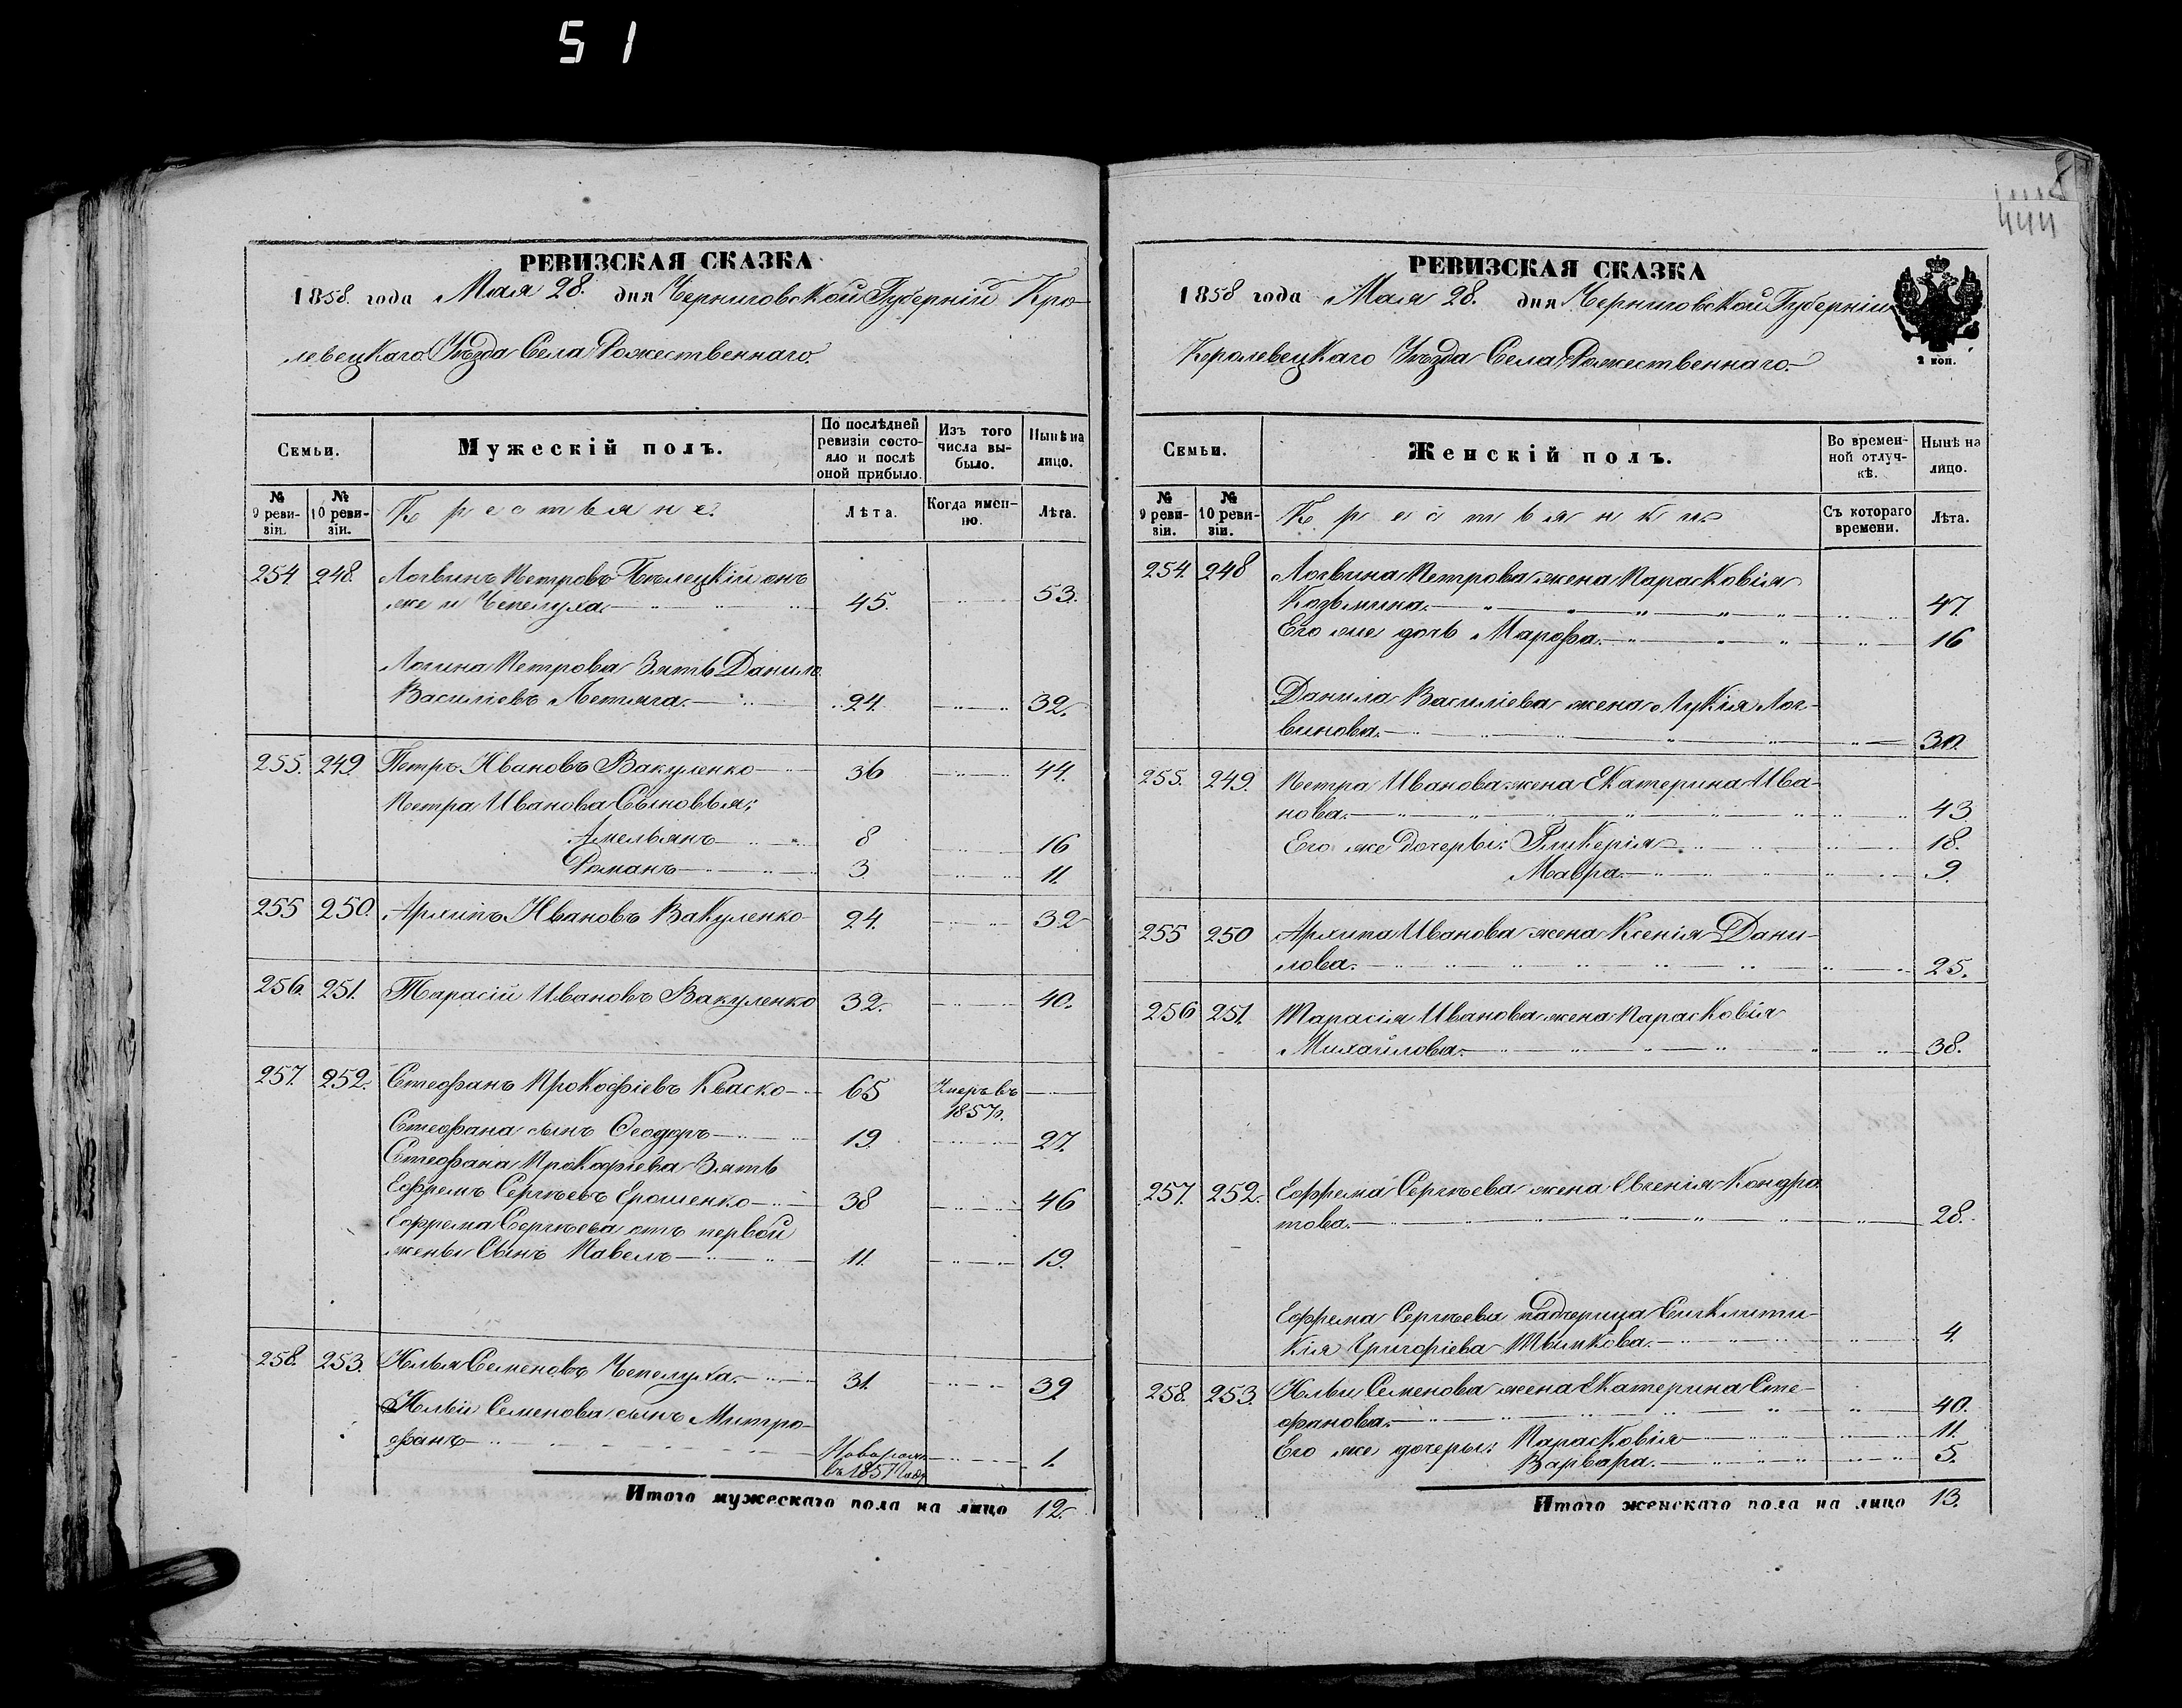 51
444
РЕВИЗСКАЯ СКАЗКА
1858. года Мая 28. дня Черниговской Губерніи Кро-
левецкаго Уѣзда Села Рожественнаго.
Семьи.
Мужескій полъ.
По послѣдней ревизіи состояло и послѣ оной прибыло.
Изъ того числа выбыло.
Нынѣ на лицо.
№ 9 ревизіи.
№ 10 ревизіи.
Крестьяне.
Лѣта.
Когда именно.
Лѣта.
254 248. Логвинъ Петровъ Бѣлецкій онъ
же и Чепелуха. 45. 53.
Логина Петрова Зять Данило
Василіевъ Летяга. 24. 32.
255. 249. Петръ Ивановъ Вакуленко 36 44.
Петра Иванова Сыновья:
Амельянъ 8 16
Романъ 3 11.
255 250. Архипъ Ивановъ Вакуленко 24. 32
256. 251. Тарасій Ивановъ Вакуленко 32. 40.
257. 252. Стефанъ Прокофіевъ Кваско 65 Умеръ въ
1857г.
Стефана сынъ Ѳеодоръ 19. 27.
Стефана Прокофіева Зять
Ефремъ Сергѣевъ Ерошенко 38 46
Ефрема Сергѣева отъ первой
жены Сынъ Павелъ 11. 19.
258. 253. Илья Семеновъ Чепелуха. 31. 39
Ильи Семенова сынъ Митро-
фанъ Новорож.
въ 1857 году 1.
Итого мужескаго пола на лицо 12.
РЕВИЗСКАЯ СКАЗКА
1858 года Мая 28. дня Черниговской Губерніи
Кролевецкаго Уѣзда Села Рожественнаго.
2 коп.
Семьи.
Женскій полъ.
Во временной отлучкѣ.
Нынѣ на лицо.
№ 9 ревизіи.
№ 10 ревизіи.
Крестьянки.
Съ котораго времени.
Лѣта.
254. 248 Логвина Петрова жена Парасковія
Козьмина. 47.
Его же дочь Марфа. 16
Данила Василіева жена Лукія Лог-
винова. 30.
255. 249. Петра Иванова жена Екатерина Ива-
нова. 43
Его же дочеры: Гликерія 18.
Мавра. 9.
255 250 Архипа Иванова жена Ксенія Дани-
лова. 25.
256 251. Тарасія Иванова жена Парасковія
Михайлова. 38.
257. 252. Ефрема Сергѣева жена Евгенія Кондра
това. 28.
Ефрема Сергѣева падчерица Сигклити-
кія Григоріева 4.
258. 253. Ильи Семенова жена Екатерина Сте-
фанова. 40.
Его же дочеры: Парасковія 11.
Варвара. 5.
Итого женскаго пола на лицо 13.